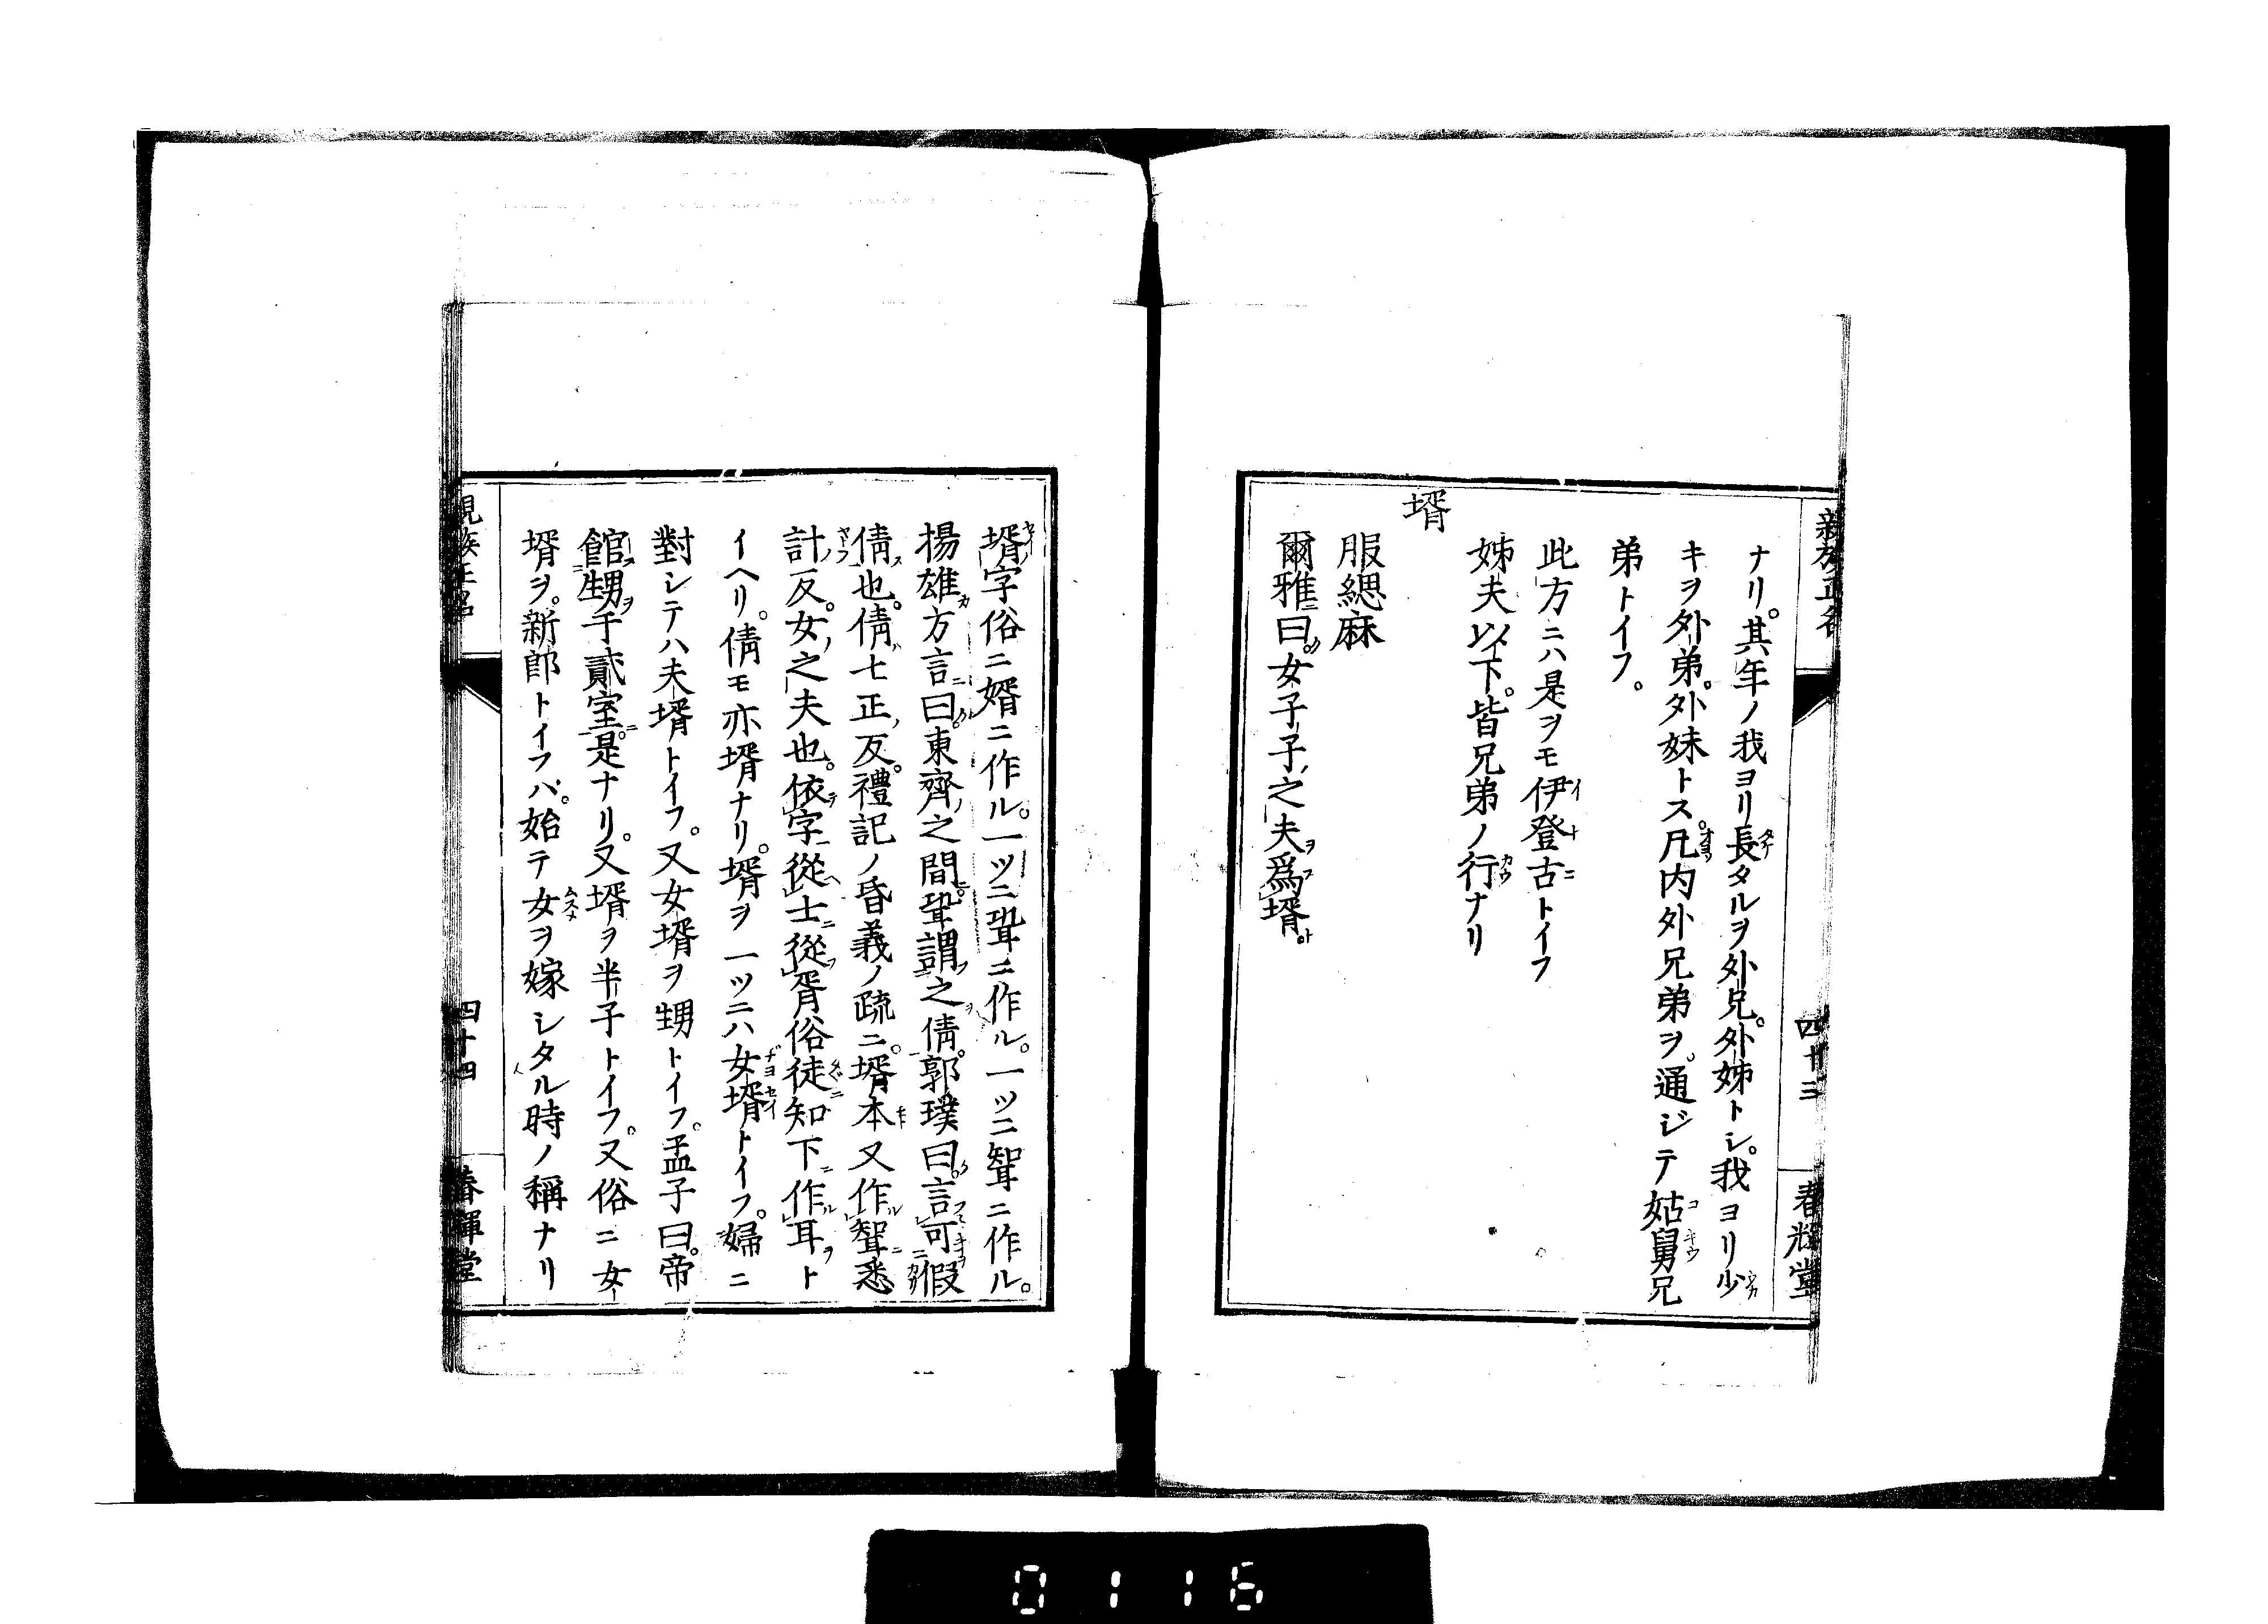 親族正名
四十三
春輝堂
ナリ。其年ノ我ヨリ長タルヲ外兄。外姊トシ。我ヨリ少
キヲ外弟。外妹トス。凡内外兄弟ヲ。通ジテ姑舅兄
弟トイフ。
此方ニハ是ヲモ伊登古トイフ
姊夫以下。皆兄弟ノ行ナリ
壻
服緦麻
爾雅曰。女子子之夫爲壻。
壻字俗ニ婿ニ作ル。一ツニ㙛ニ作ル。一ツニ聟ニ作ル。
揚雄方言曰。東齊之間。謂之倩。郭璞曰。言可假
倩也。倩七正反。禮記ノ昏義ノ疏ニ。壻本又作聟。悉
計反。女之夫也。依字從士從胥。俗徒知下作耳ト
イヘリ。倩モ亦壻ナリ。壻ヲ一ツニハ女壻トイフ。婦ニ
對シテハ夫壻トイフ。又女壻ヲ甥トイフ。孟子曰。帝
館甥于貳室。是ナリ。又壻ヲ半子トイフ。又俗ニ女
壻ヲ。新郎トイフハ。始テ女ヲ嫁シタル時ノ稱ナリ
親族正名
四十四
春輝堂
0116